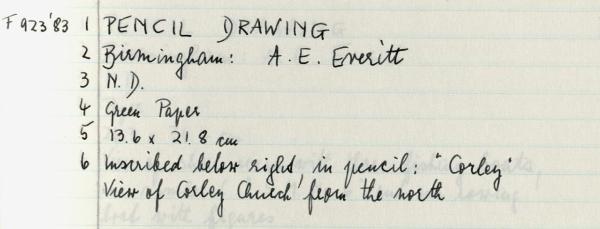 F923'83 1 PENCIL DRAWING
2 Birmingham: A. E. Everitt
3 N.D.
4 Green Paper
5 13.6 x 21.8 cm
6 Inscribed below right in pencil: "Corley"
View of Corley Church from the north